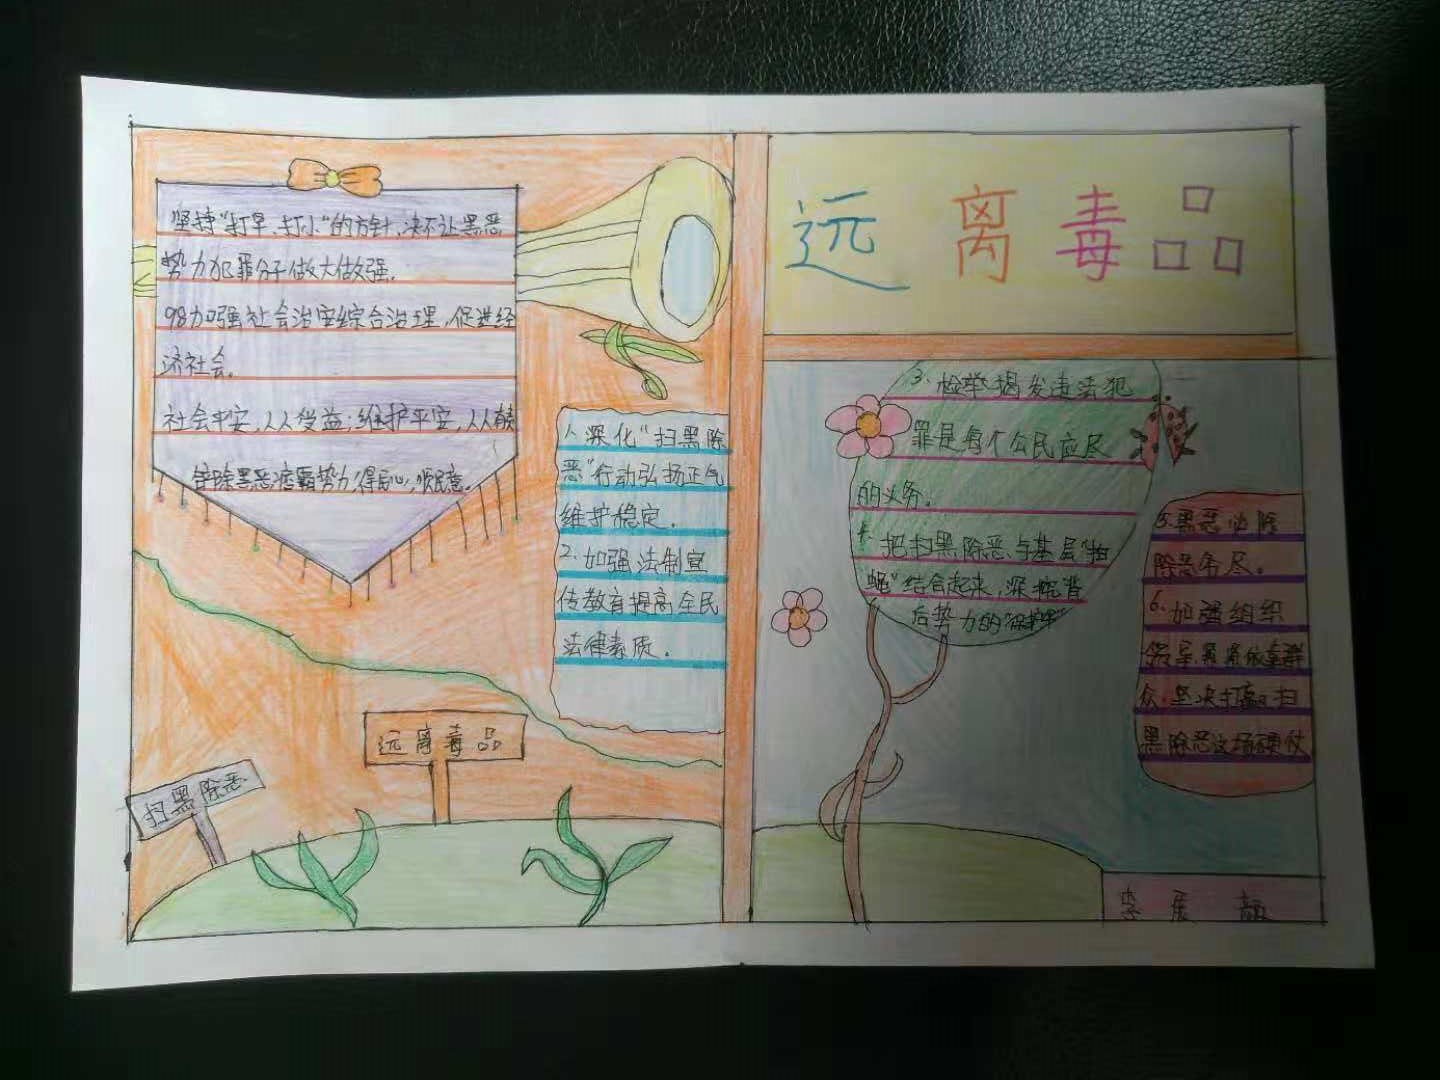 远离毒品
坚持“打早、打小”的方针,决不让黑恶
势力犯罪分子做大做强。
98加强社会治安综合治理,促进经
济社会。
社会平安,人人受益;维护平安,人人有责
铲除黑恶流霸势力得民心,顺民意。
1、深化“扫黑除
恶”行动弘扬正气
维护稳定。
2、加强法制宣
传教育提高全民
法律素质。
远离毒品
扫黑除恶
3、检举揭发违法犯
罪是每个公民应尽
的义务。
4、把扫黑除恶与基层“拍
蝇”结合起来,深挖背
后势力的“保护伞”
5.黑恶必除
除恶务尽。
6、加强组织
领导,紧紧依靠群
众,坚决打赢扫
黑除恶这场硬仗
李展颜